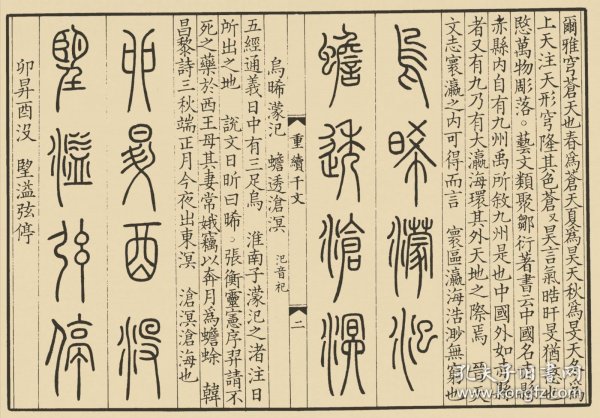 爾雅穹蒼天也春為蒼天夏為昊天秋為旻天冬為
上天注天形穹隆其色蒼又昊言氣晧旰旻猶愍也
愍萬物彫落。藝文類聚鄒衍著書云中國名赤縣
赤縣內自有九州禹所敘九州是也中國外如赤縣
者又有九乃有大瀛海環其外天地之際焉 晉天
文志寰瀛之內可得而言 寰區瀛海浩渺無窮也
烏晞濛汜
蟾透滄溟
重續千文 二
烏晞濛汜 蟾透滄溟 汜音祀
五經通義日中有三足烏 淮南子濛汜之渚注日
所出之地 說文日昕曰晞。張衡靈憲序羿請不
死之藥於西王母其妻常娥竊以奔月為蟾蜍 韓
昌黎詩三秋端正月今夜出東溟 滄溟滄海也
卯昇酉沒
朢溢弦停
卯昇酉沒 朢溢弦停
孔夫子旧书网